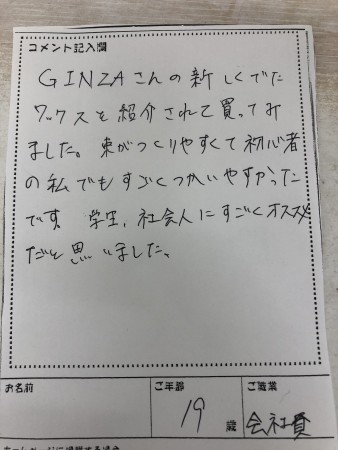 コメント記入欄
GINZAさんの新しくでた
ワックスを紹介されて買ってみ
ました。束がつくりやすくて初心者
の私でもすごくつかいやすかった
です。学生、社会人にすごくオススメ
だと思いました。
お名前
ご年齢
ご職業
19歳
会社員